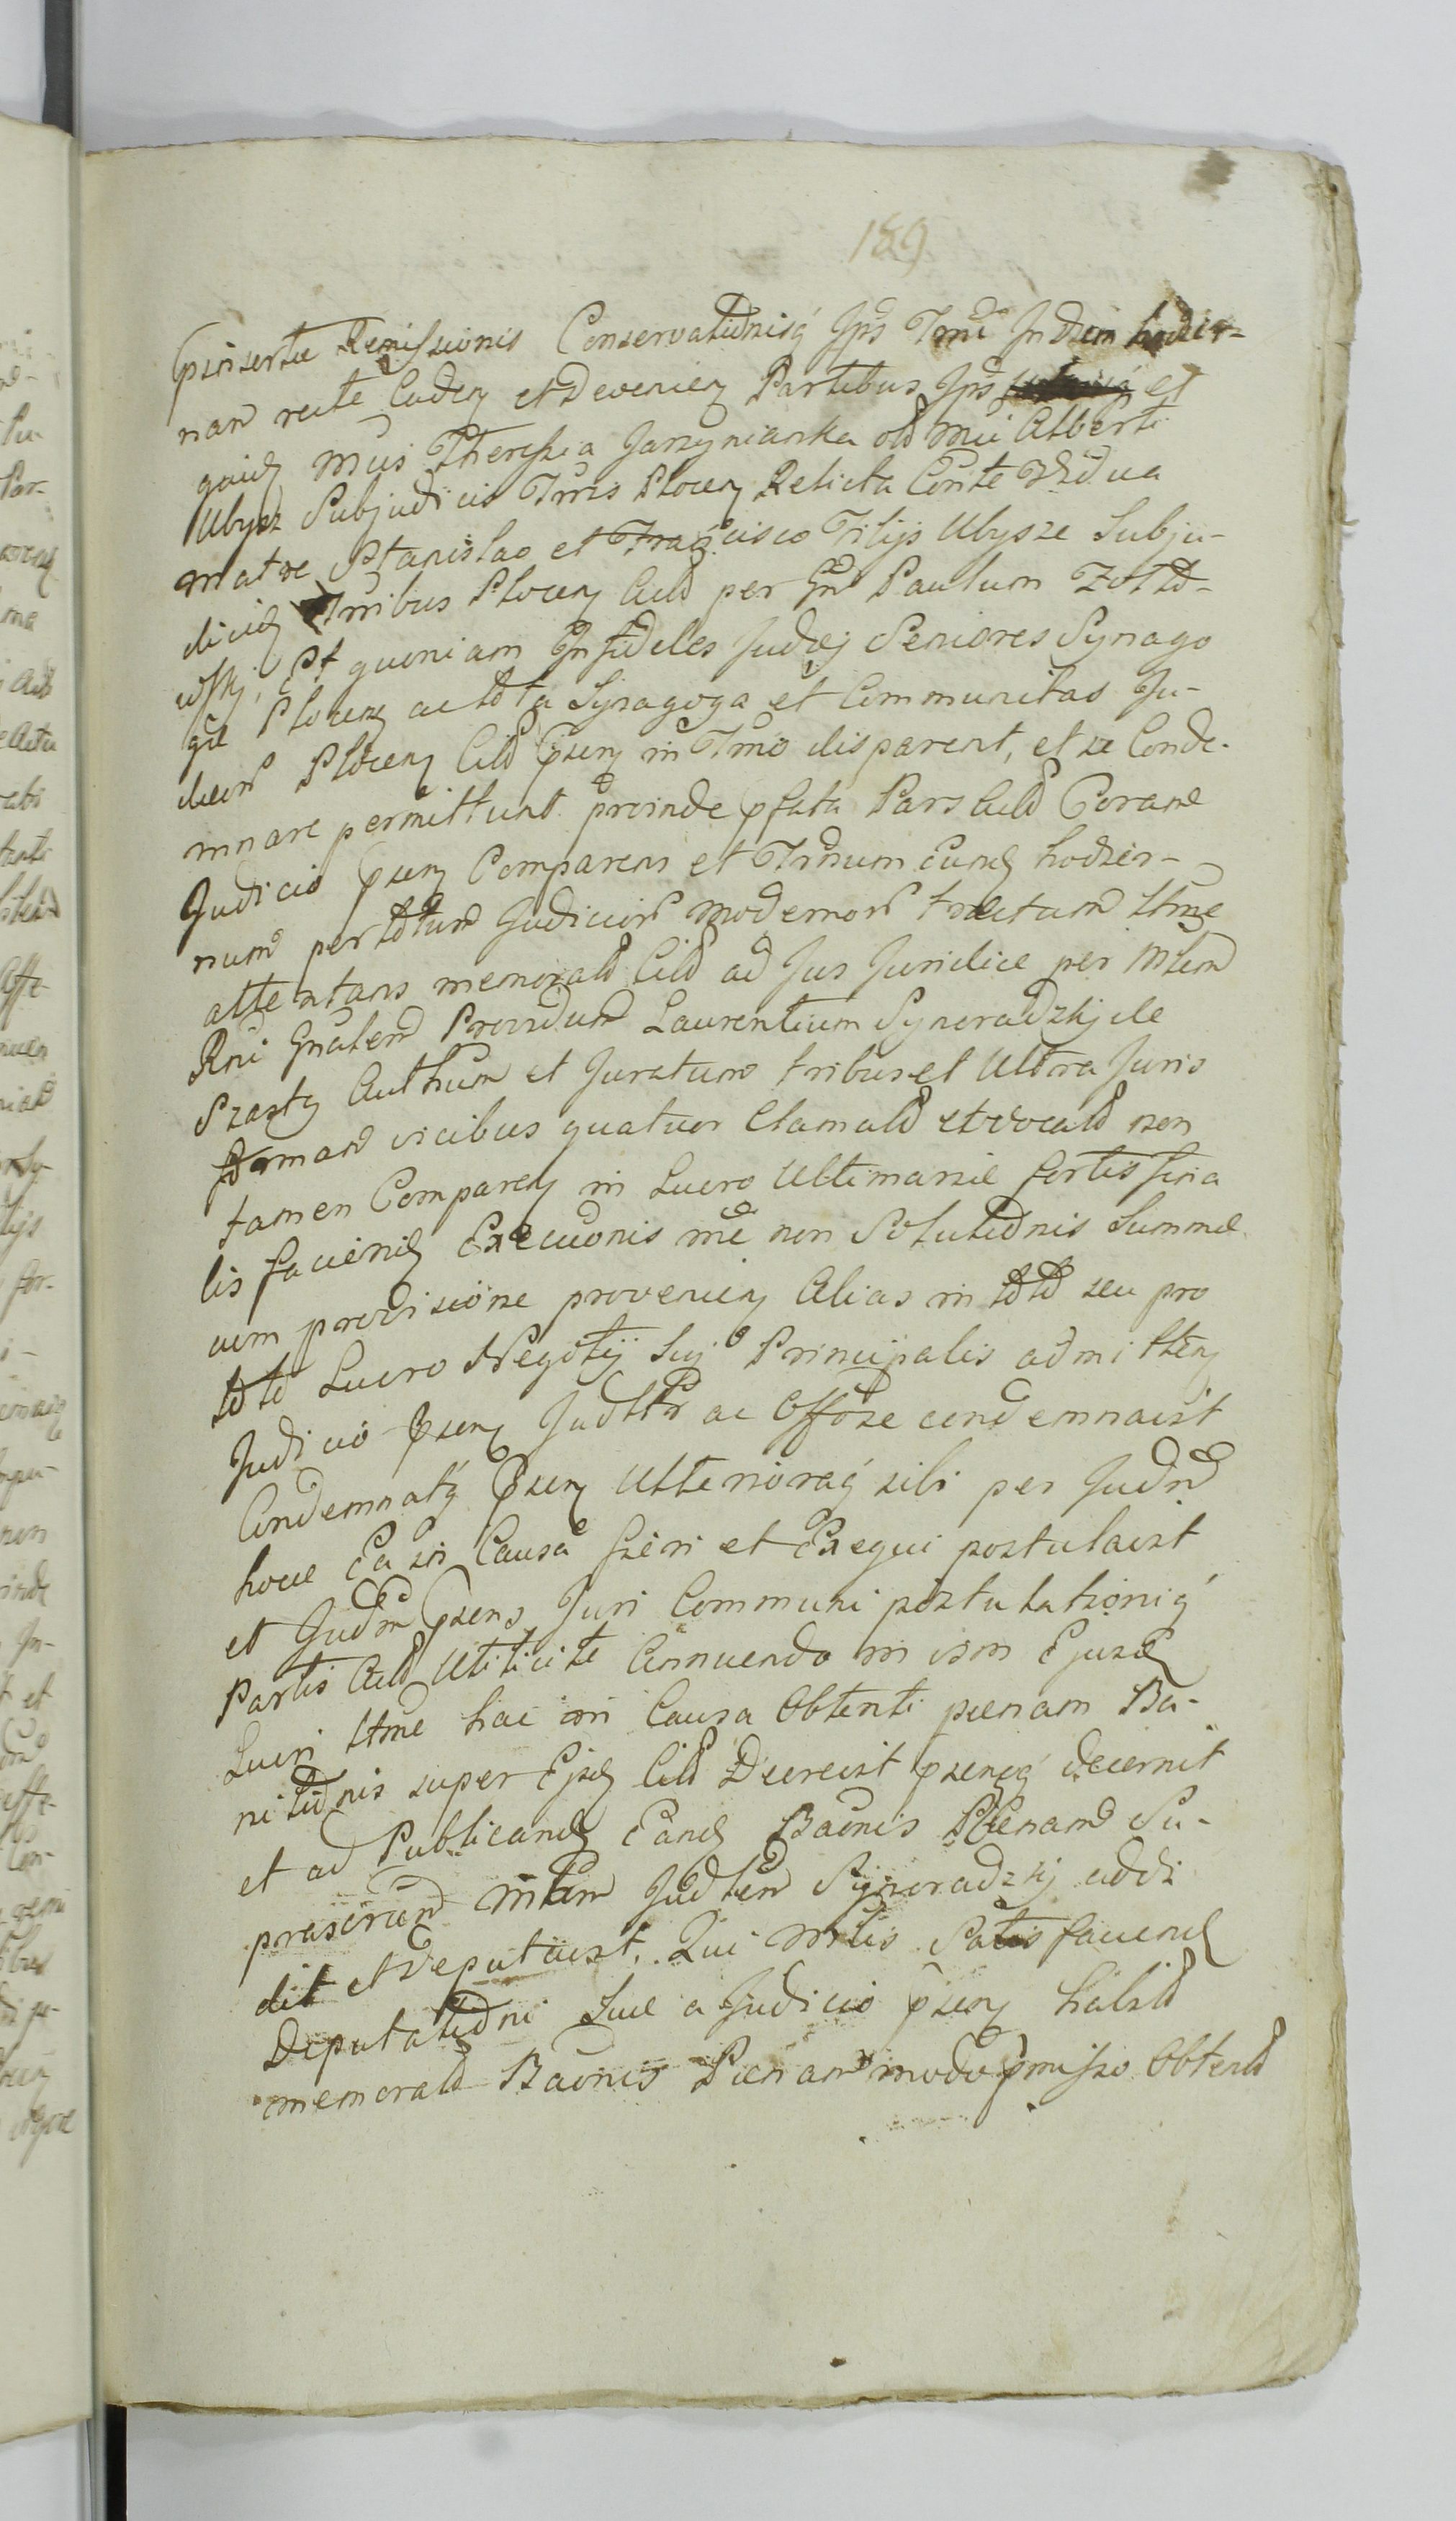 189
pinsertae Remissionis Conservationisq Ips Tmi In Diem hodier-
nam recte Caden et Devenien Partibus Ips et
quid Mcis Theressia Jarzyniarska old Mci Alberti
Ubysz Subjudicis Trris Plocen Relicta Conte Vidua
matre Stanislao et Francisco Filijs Ubysze Subju-
dicid Trribus Plocen Actd per Gnd Paulum Zotto-
wskj, Et quoniam Infideles Judaej Seniores Synago
gae Plocen ac tota Synagoga et Communitas Ju-
daeor Plocen Citd psen in Tmo disparent, et se Conde-
mnare permittunt proinde pfata Pars Actd Coram
Judicio psen Comparens et Trnum eund hodier-
num per totum Judicior modernor tractum ltme
attentans memoratd Citd ad Jus Juridice per Mlem
Rni Gnalem Providum Laurentium Synoradzkj de
Szasty Authum et Juratum tribus et Ultra Juris
formam vicibus quatuor Clamatd et vocatd non
tamen Comparen in Lucro Ultimariae fortis fina
lis faciend Execuonis mae non Solutionis Summae
cum provisione provenien Alias in toto seu pro
toto Lucro Negotij Suj Principalis admitten
Judicio psen Judltr ac Offose condemnavit
Condemnatq psen Ulterioraq sibi per Judm
hocce Ea in Causa fieri et Exequi postulavit
et Judm psens Juri Communi postulationiq
Partis Actd Utiticite Annuendo in vim Ejusd
Lucri ltme hac in Causa Obtenti paenam Ba-
nitionis super Ejsd Citd Decrevit psensq decernit
et ad Publicand Eand Baonis Paenam Su-
prascrium Mlem Judlem Synoradzkj addi
dit et Deputavit. Qui Mlis Satisfaciend
Deputationi Suae a Judicio psen habitd
memoratd Baonis Paenam modo pmisso Obtentd